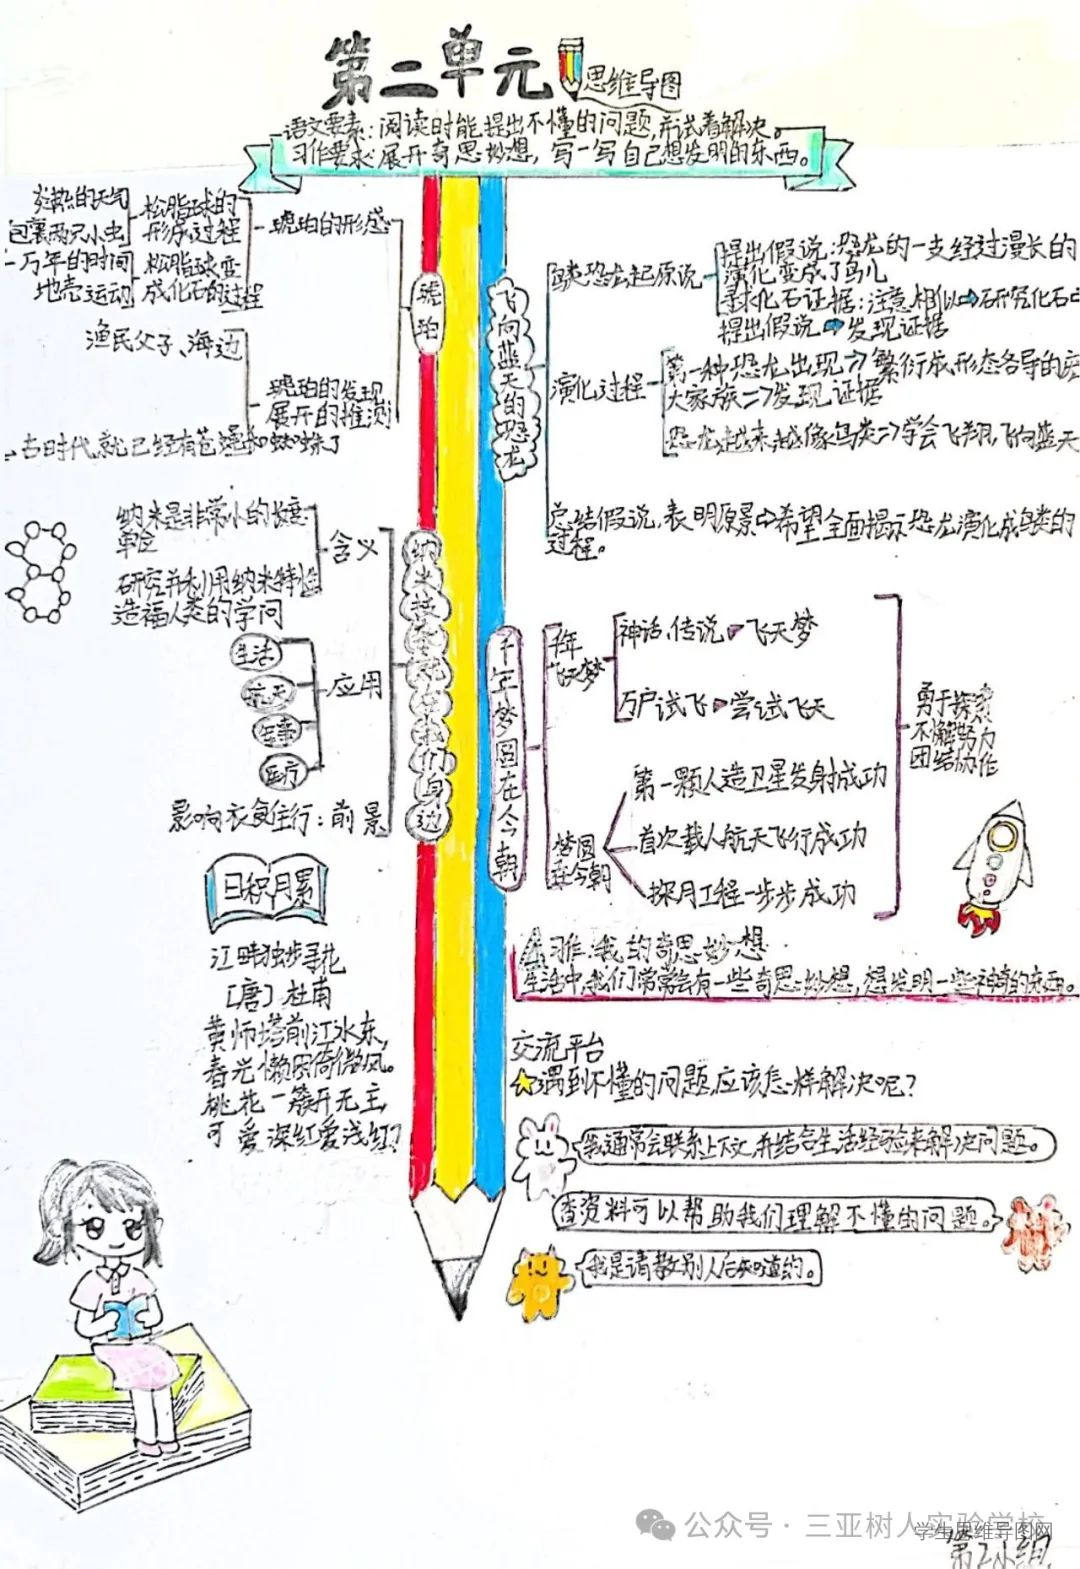 第二单元
思维导图
语文要素:阅读时能提出不懂的问题,并试着解决。
习作要求:展开奇思妙想,写一写自己想发明的东西。
琥珀
琥珀的形成
松脂球的
形成过程
炎热的天气
包裹两只小虫
松脂球变
成化石的过程
万年的时间
地壳运动
琥珀的发现
展开的推测
渔民父子、海边
古时代,就已经有苍蝇和蜘蛛了
纳米技术就在我们身边
含义
纳米是非常小的长度
单位
研究并利用纳米特性
造福人类的学问
应用
生活
航天
军事
医疗
影响衣食住行:前景
日积月累
江畔独步寻花
[唐]杜甫
黄师塔前江水东,
春光懒困倚微风。
桃花一簇开无主,
可爱深红爱浅红?
飞向蓝天的恐龙
鸟类恐龙起原说
提出假说:恐龙的一支经过漫长的
演化变成了鸟儿
寻找化石证据:注意相似⇒研究化石
提出假说⇒发现证据
演化过程
第一种恐龙出现⇒繁衍成形态各异的庞
大家族⇒发现证据
恐龙越来越像鸟类⇒学会飞翔,飞向蓝天
总结假说,表明愿景⇒希望全面揭示恐龙演化成鸟类的
过程。
千年梦圆在今朝
千年
飞天梦
神话、传说
飞天梦
万户试飞
尝试飞天
梦圆
在今朝
第一颗人造卫星发射成功
首次载人航天飞行成功
探月工程一步步成功
勇于探索
不懈努力
团结协作
习作:我的奇思妙想
生活中,我们常常会有一些奇思妙想,想发明一些神奇的东西。
交流平台
遇到不懂的问题,应该怎样解决呢?
我通常会联系上下文,并结合生活经验来解决问题。
查资料可以帮助我们理解不懂的问题。
我是请教别人后知道的。
公众号·三亚树人实验学校
学生思维导图网
第2小组